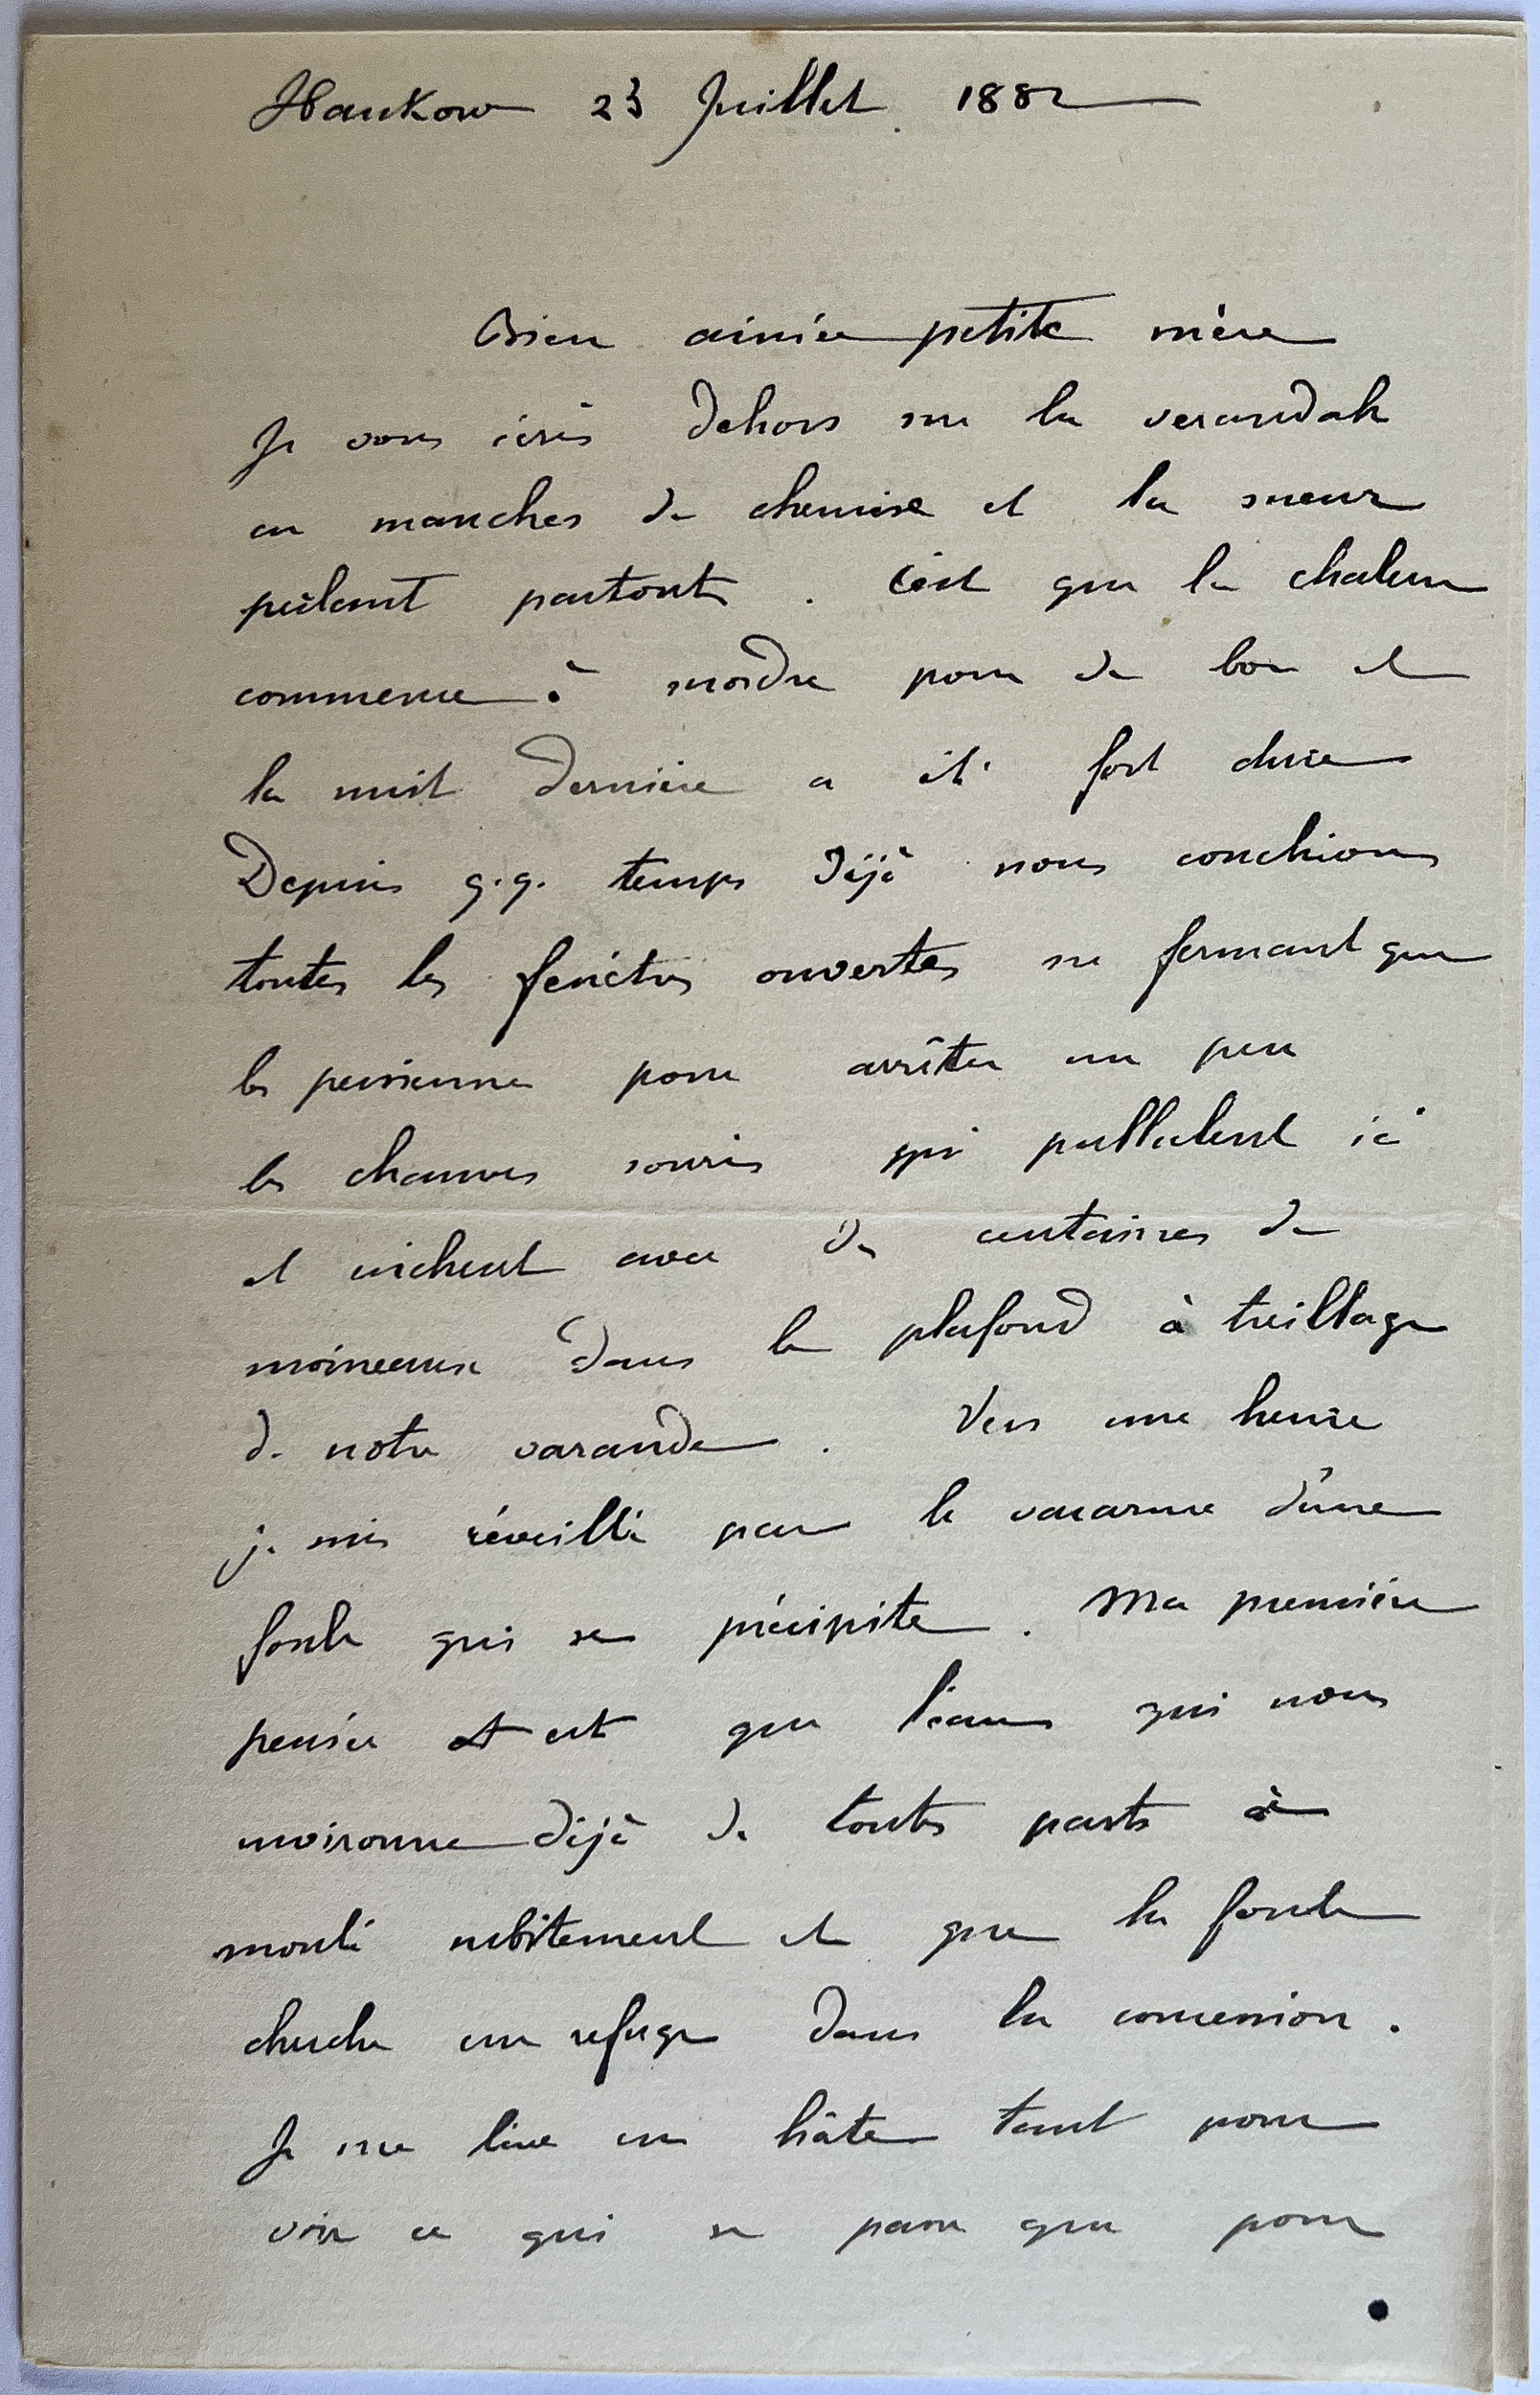 Hankow 23 Juillet 1882
Bien aimée petite mère
Je vous écris dehors sur la verandah
en manches de chemise et la sueur
perlant partout. C'est que la chaleur
commence à mordre pour de bon et
la nuit dernière a été fort dure
Depuis q.q. temps déjà nous couchions
toutes les fenêtres ouvertes ne fermant que
les persiennes pour arrêter un peu
les chauves souris qui pullulent ici
et nichent avec des centaines de
moineaux dans le plafond à treillage
de notre varande. Vers une heure
je suis réveillé par le vacarme d'une
foule qui se précipite. Ma première
pensée est que l'eau qui nous
environne déjà de toutes parts a
monté subitement et que la foule
cherche un refuge dans la concession.
Je me lève en hâte tant pour
voir ce qui se passe que pour